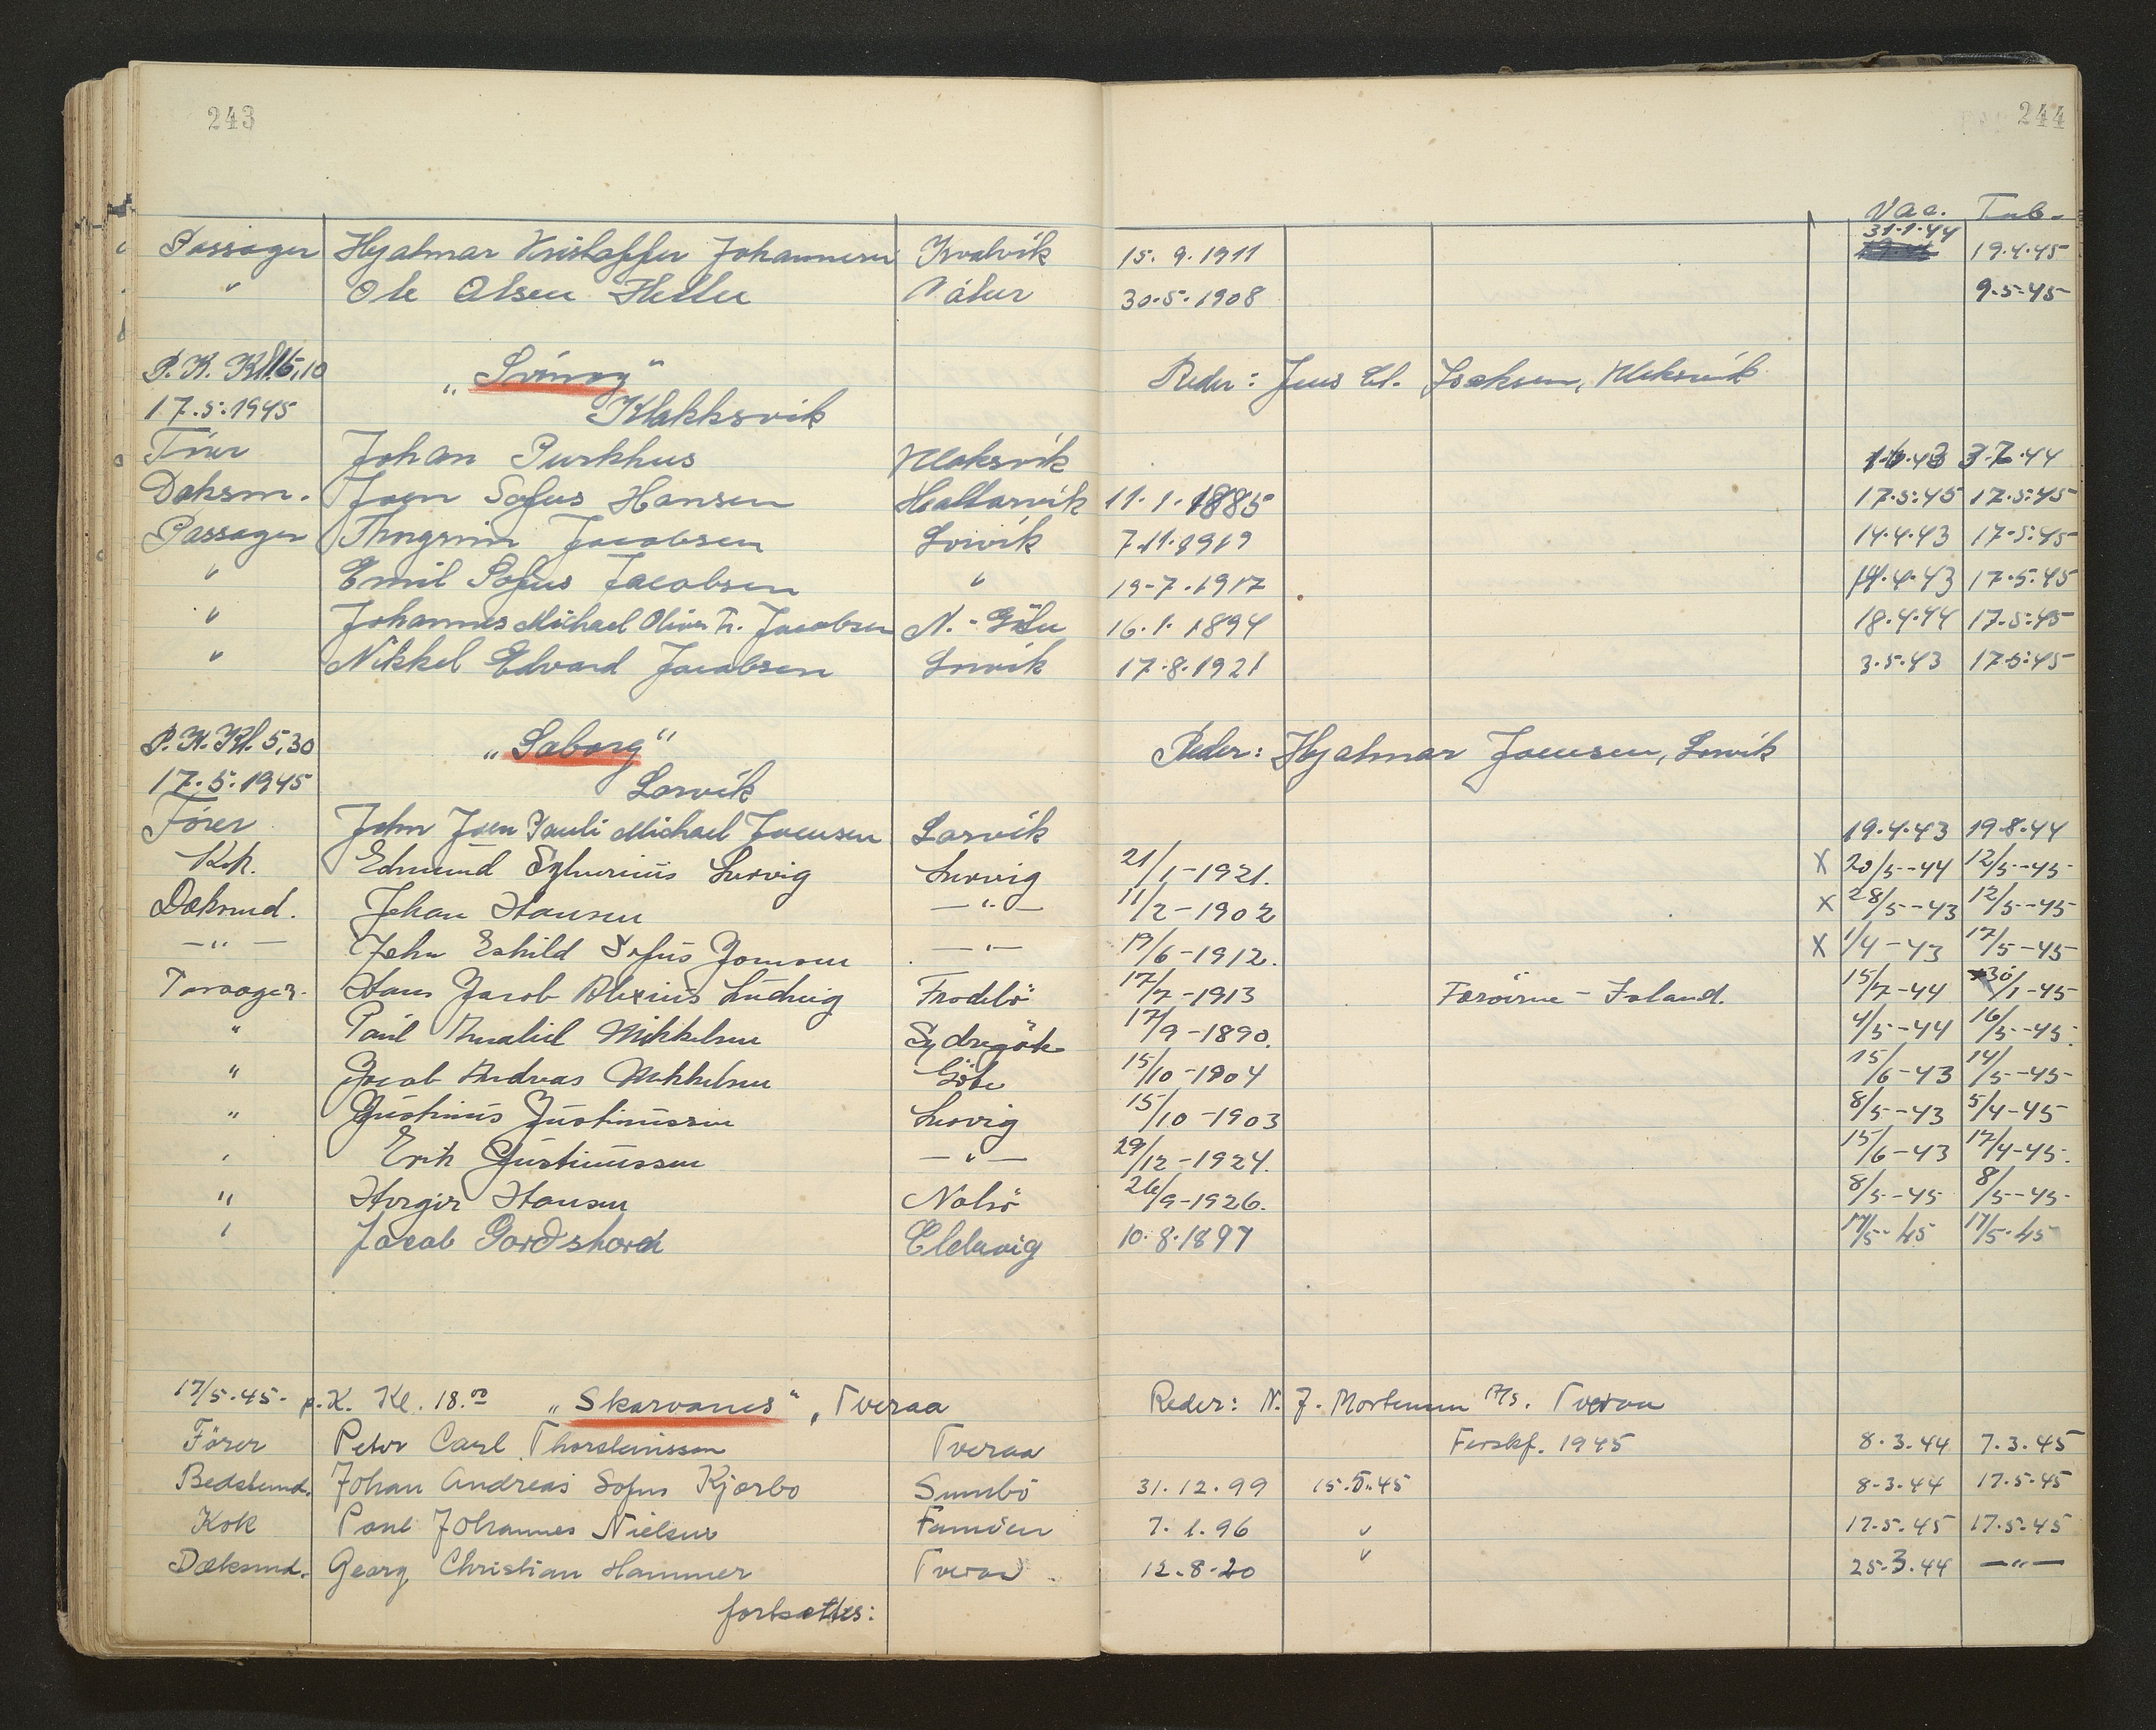 243
244
Vac. Tub-
Passager Hjalmar Kristoffer Johannesen Kvalvik 15.9.1911 31.1.44 19.4.45
" Ole Olsen Heller 30.5.1908 9-5-45
P.K. Kl. 16,10 „Svinoy" Reder: Jens Cl. Isaksen, Klaksvik
17.5.1945 Klakksvik
Förer Johan Purkhus Klaksvik 3-7-44
Daksm. Joen Sofus Hansen Hattarvik 11.1.1885 17.5.45 17.5.45
Passager Thorgrim Jacobsen Lorvik 7.11.1919 14.4.43 17.5.45
" Emil Sofus Jacobsen " 19-7.1917 14.4.43 17.5.45
" Johannes Michael Oliver Fr. Jacobsen N.-Götu 16.1.1894 18.4.44 17.5.45
" Nikkel Edvard Jacobsen Lorvik 17.8.1921 3.5.43 17.5.45
P.K. Kl. 5,30 „Saborg" Reder: Hjalmar Joensen, Lorvik
17.5.1945 Lorvik
Förer John Joen Pauli Michael Joensen Lorvik 19.4.43 19.8.44
Kok. Edmund Sylverius Lervig Lervig 21/1-1921. X 20/5--44 12/5--45-
Dæksmd. Johan Hansen —"— 11/2-1902 X 28/5--43 12/5--45
—"— John Eskild Sofus Joensen —"— 17/6-1912. X 1/4-43 17/5-45
Passager. Hans Jacob Alexius Ludvig Frodebö 17/7-1913 Færöerne - Island. 15/7-44 30/1-45
" Paul Mikkelsen Sydregöte 17/9-1890. 4/5--44 16/5--45.
" Jacob Andreas Mikkelsen Göte 15/10-1904 15/6-43 14/5--45-
" Justinus Justinussen Lervig 15/10-1903 8/5--43 5/4-45
" Erik Justinussen —"— 29/12-1924. 15/6-43 17/4-45.
" Hergeir Hansen Nolsö 26/9-1926. 8/5--45 8/5--45-
" Jacob Gardshorn Eldevig 10.8.1897 17/5-45 17/5-45
17/5.45- p.K. Kl. 18.00 „Skarvanes", Tveraa Reder: N. J. Mortensen Tveraa
Förer Peter Carl Thorsteinsson Tveraa Ferskf. 1945 8.3.44 7.3.45
Bedstemd. Johan Andreas Sofus Kjærbo Sumbö 31.12.99 15.5.45 8-3.44 17.5.45
Kok Poul Johannes Nielsen Famöen 7.1.96 " 17.5.45 17.5.45
Dæksmd. Georg Christian Hammer Tveraa 12.8.20 " 25.3.44 —"—
fortsættes: